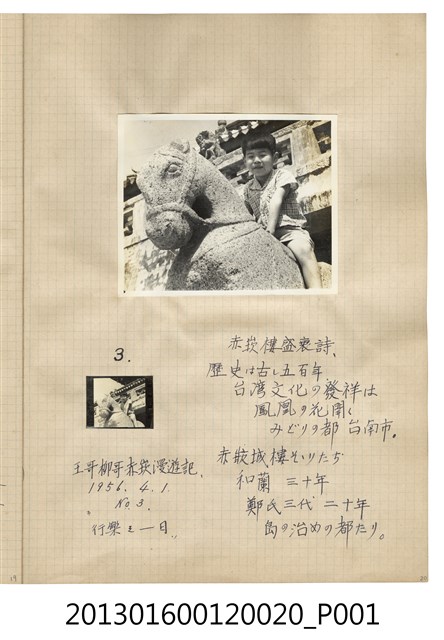 3.
王哥柳哥赤崁漫遊記、
1956. 4. 1
No 3.
行樂之一日、
赤崁樓盛衰詩、
歷史は古し五百年
台湾文化の發祥は
鳳凰の花開く
みどりの都 台南市。
赤崁城樓そりたち
和蘭 三十年
鄭氏三代 二十年
島の治めの都たり。
19
20
201301600120020_P001